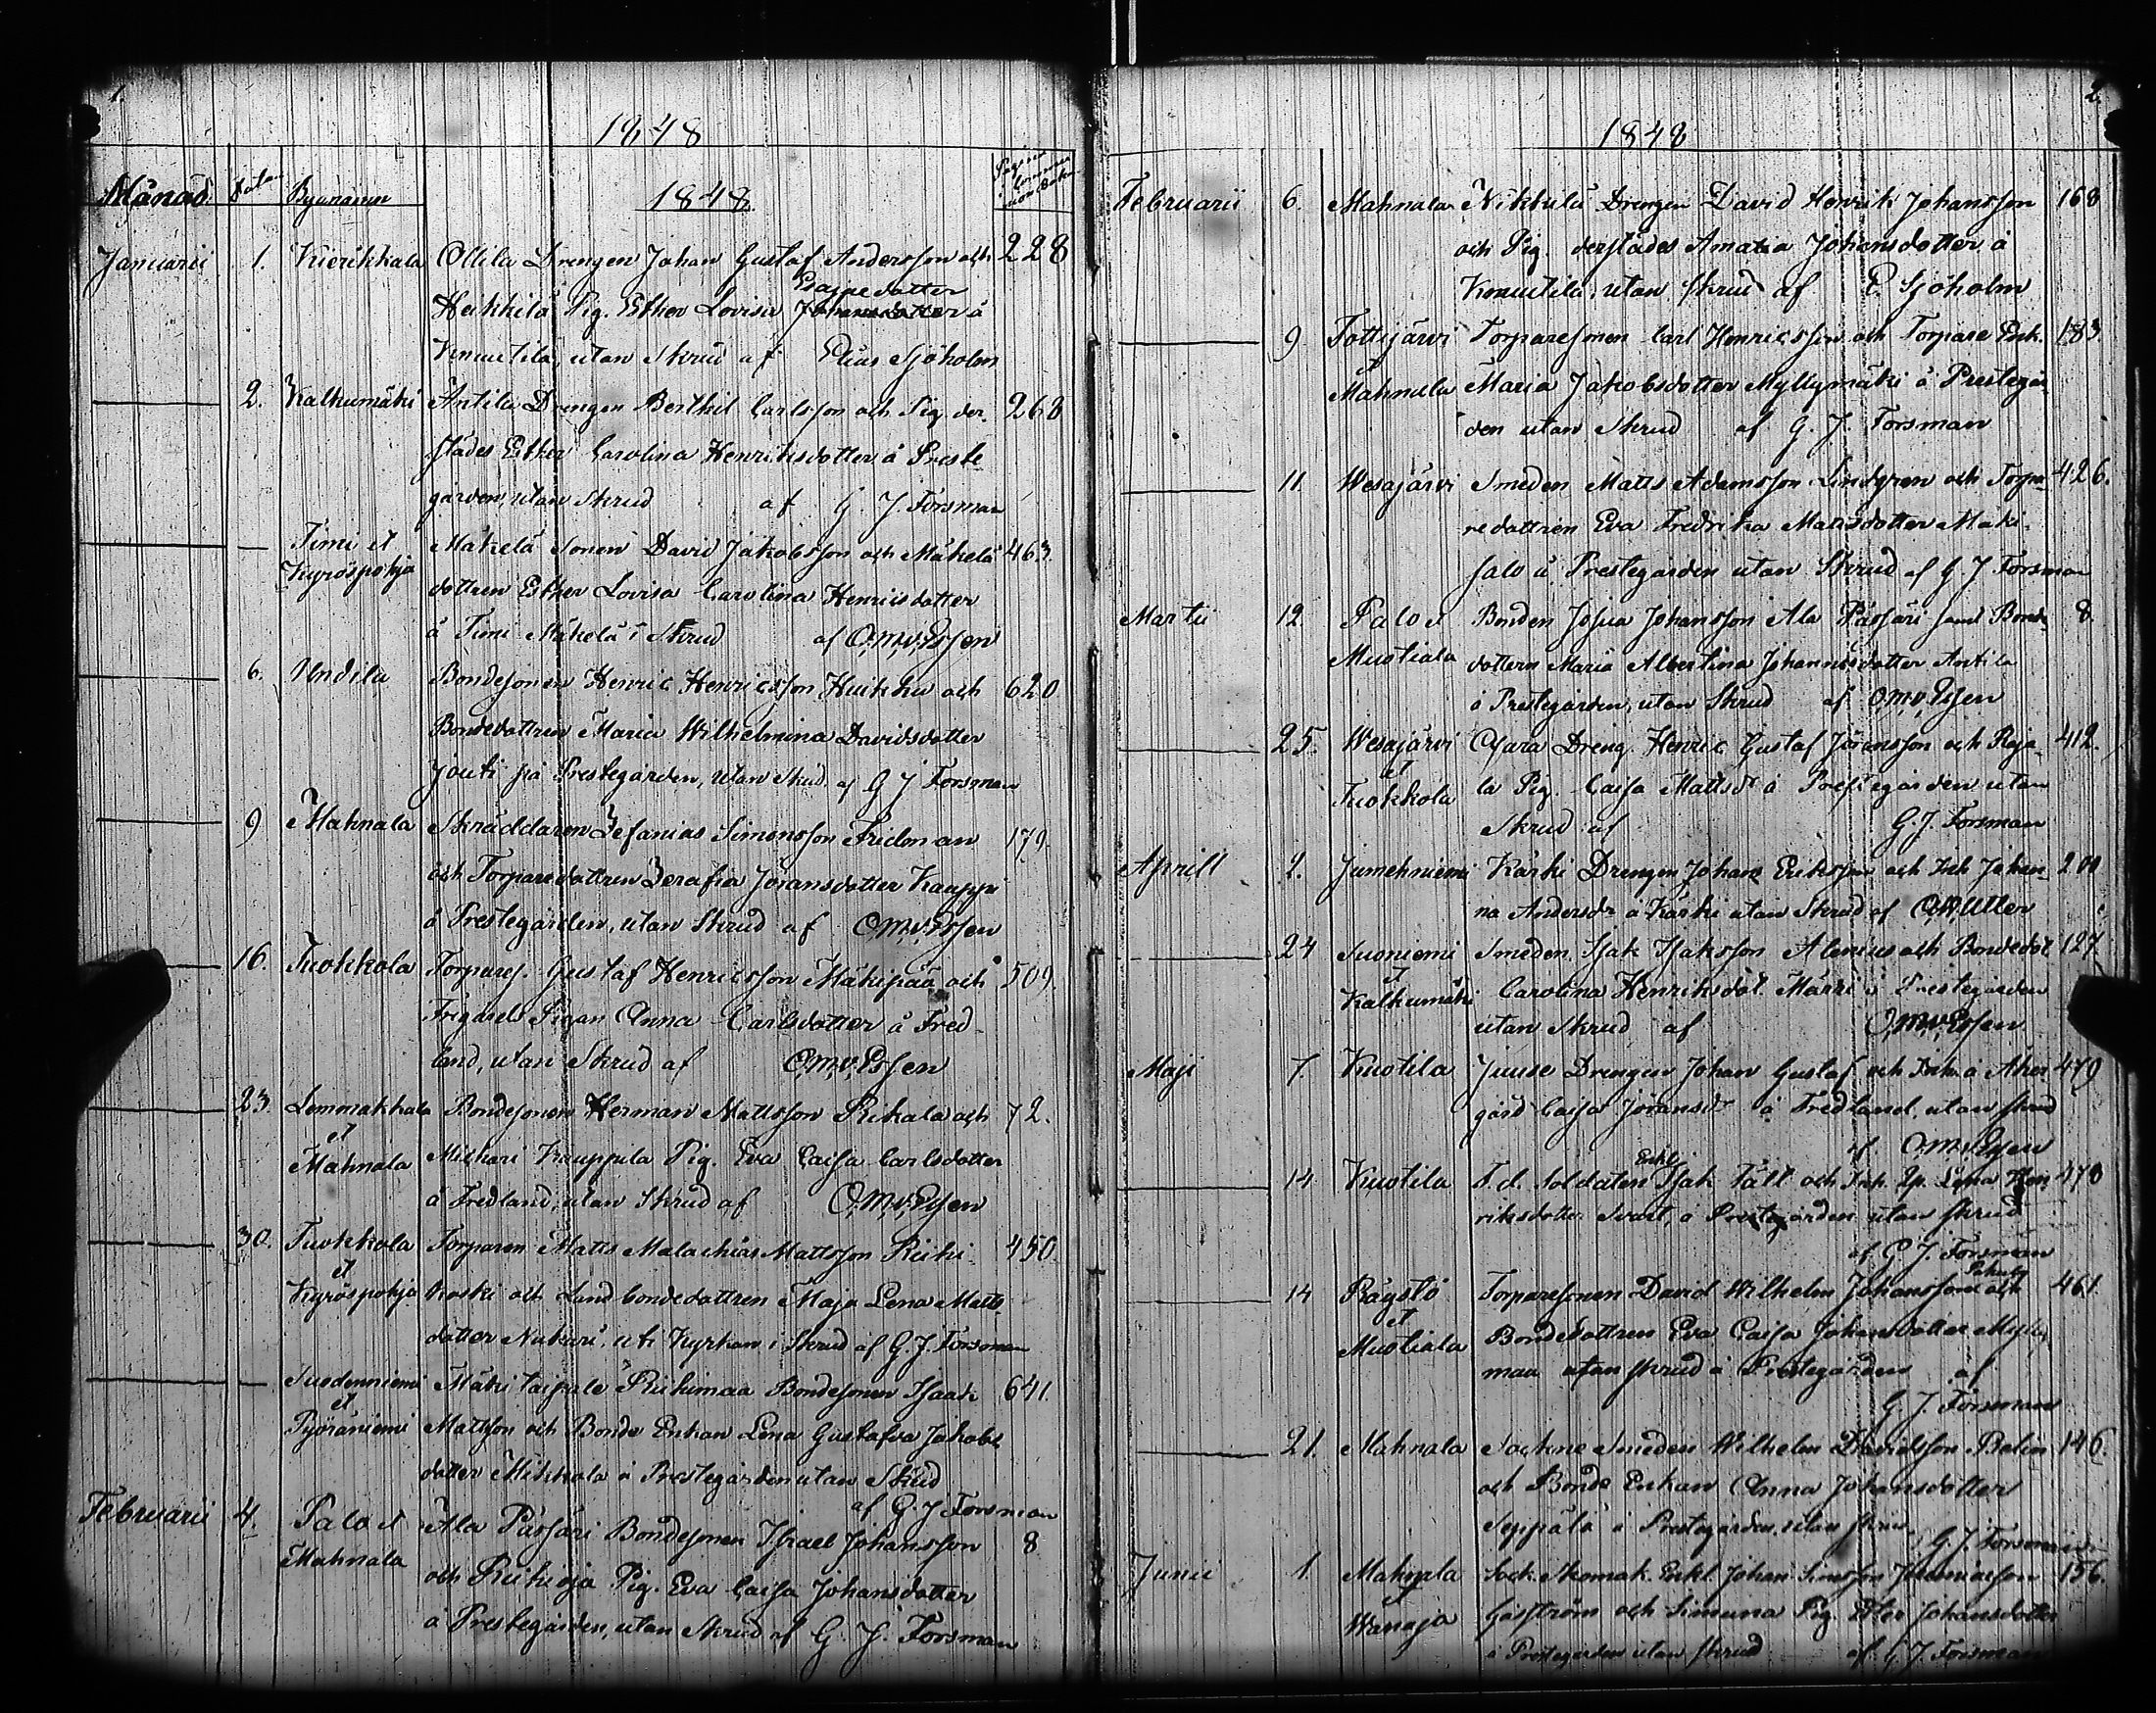 1.
1848
Månad Datum Byanamn 1848. Pagina i Communion Boken
Januarii 1. Kierikkala Ollila Drengen Johan Gustaf Andersson och 228
Esaiaedotter
Heikkilä Pig. Esther Lovisa Johansdotter å
Knuutila, utan Skrud af Elias Sjöholm
2. Kalkumäki Antila Drengen Berthil Carlsson och Pig. der- 268
städes Esther Carolina Henriksdotter å Preste
gården, utan Skrud af G. J. Forsman
— Timi et Mäkelä Sonen David Jakobsson och Mäkelä 463
Kyröspohja dottren Esther Lovisa Carolina Henricsdotter
å Timi Mäkelä i Skrud af O.M.v.Essen
6. Undila Bondesonen Henric Henricsson Huikku och 620
Bondedottren Maria Wilhelmina Davidsdotter
Jouti på Prestegården, utan Skrud, af G J Forsman
9 Mahnala Skräddaren Zefanias Simonsson Fridman 179.
och Torparedottren Zerafia Jöransdotter Kauppi
å Prestegården, utan Skrud af O.M.v.Essen
16. Tuokkola Torpares. Gustaf Henricsson Mäkipää och 509.
Frigårds Pigan Anna Carlsdotter å Fred-
land, utan Skrud af O.M.v.Essen
23. Lemmakkala Bondesonen Herman Mattsson Rikala och 72.
et
Mahnala Michari Kauppila Pig. Eva Caisa Carlsdotter
å Fredland, utan Skrud af O.M.v.Essen
30. Tuokkola Torparen Matts Malachias Mattsson Riihi- 450.
et
Kyröspohja koski och Landbondedottren Maja Lena Matts
dotter Nakari, uti Kyrkan i Skrud af G. J. Forsman
— Suodenniemi Mäkitaipale Riihimaa Bondesonen Isaak 641.
et
Pyöräniemi Mattsson och Bonde Enkan Lena Gustafva Jakobs
dotter Mikkola å Prestegården utan Skrud
af G. J. Forsman
Februarii 4. Palo et Ala Pässäri Bondesonen Israel Johansson 8
Mahnala och Riihioja Pig. Eva Caisa Johansdotter
å Prestegården, utan Skrud af G. J. Forsman
2.
1848
Februarii 6. Mahnala Nikkilä Drengen David Henrik Johansson 168
och Pig. derstädes Amalia Johansdotter å
Knuutila, utan Skrud af E. Sjöholm
9. Tottijärvi Torparesonen Carl Henricsson och Torpare Enk. 183.
et
Mahnala Maria Jakobsdotter Myllymäki å Prestegår
den utan Skrud af G. J. Forsman
11. Wesajärvi Smeden Matts Adamsson Lindgren och Torpa- 426.
redottren Eva Fredrika Mattsdotter Mäki-
salo å Prestegården utan Skrud af G J Forsman
Martii 12. Palo et Bonden Josua Johansson Ala Pässäri samt Bonde 8.
Muotiala dottern Maria Albertina Johannisdotter Antila
å Prestegården, utan Skrud af O.M.v.Essen
25. Wesajärvi Ojara Dreng. Henric Gustaf Jöransson och Raja- 412.
et
Tuokkola la Pig. Caisa Mattsdr å Prestegården utan
Skrud af G. J. Forsman
Aprill 2. Jumehniemi Kärki Drengen Johan Eriksson och Inh Johan- 200
na Andersdr å Kärki utan Skrud af
24 Suoniemi Smeden Isak Isaksson Alenius och Bondedot 127.
et
Kalkumäki Carolina Henriksdot. Märri å Prestegården
utan Skrud af O.M.v.Essen
Maji 7. Kuotila Juuse Drengen Johan Gustaf och Inh. å Åker- 479
gård Caisa Jöransdr å Fredland, utan skrud
af O.M.v.Essen
14 Kuotila F.d. Soldaten Enkl. Isak Fält och Inh. Lena Hen- 478
riksdotter Svart, å Prestegården utan skrud
af G J. Forsman
14 Rågslö Torparesonen David Wilhelm Johansson och 461.
et
Muotiala Bondedottren Eva Caisa Johansdotter
maa utan skrud å Prestegården af
G J. Forsman
21. Mahnala Sockne Smeden Wilhelm Davidsson Belin 146.
och Bonde Enkan Anna Johansdotter
Seppälä å Prestegården, utan skrud G. J. Forsman
Junii 1. Mahnala Sock. Skomak. Enkl. Johan Simsson 156.
et
Wanaja Gåsström och Simuna Pig. Johansdotter
å Prestegården utan skrud af G J. Forsman